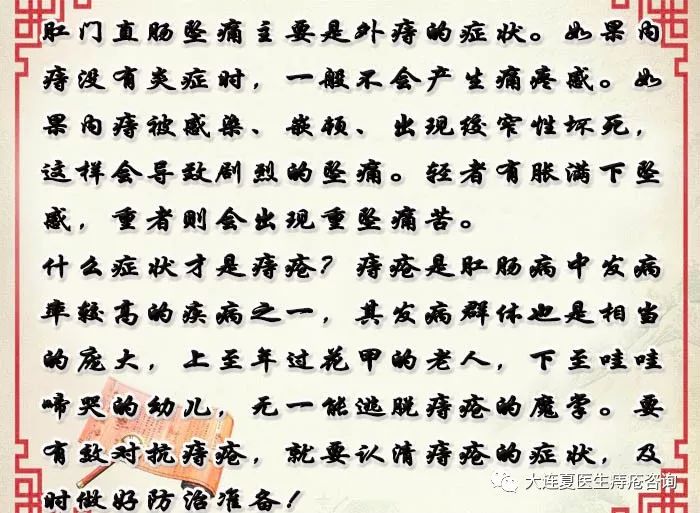 肛门直肠坠痛主要是外痔的症状。如果内
痔没有炎症时，一般不会产生痛疼感。如
果内痔被感染、嵌顿、出现绞窄性坏死，
这样会导致剧烈的坠痛。轻者有胀满下坠
感，重者则会出现重坠痛苦。
什么症状才是痔疮？痔疮是肛肠病中发病
率较高的疾病之一，其发病群体也是相当
的庞大，上至年过花甲的老人，下至哇哇
啼哭的幼儿，无一能逃脱痔疮的魔掌。要
有效对抗痔疮，就要认清痔疮的症状，及
时做好防治准备！
大连夏医生痔疮咨询